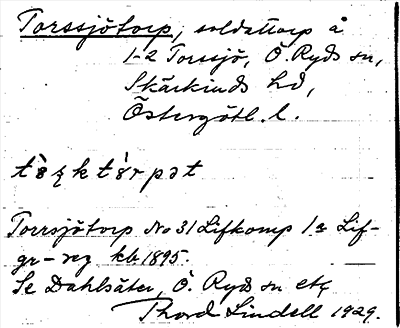 Torssjötorp, soldattorp å
1-2 Torssjö, Ö. Ryds sn,
Skärkinds hd,
Östergötl. l.
Torrsjötorp No 31 Lifkomp 1a Lif-
gr-reg kb 1895.
Se Dahlsäter, Ö. Ryds sn etc
Thord Lindell 1929.